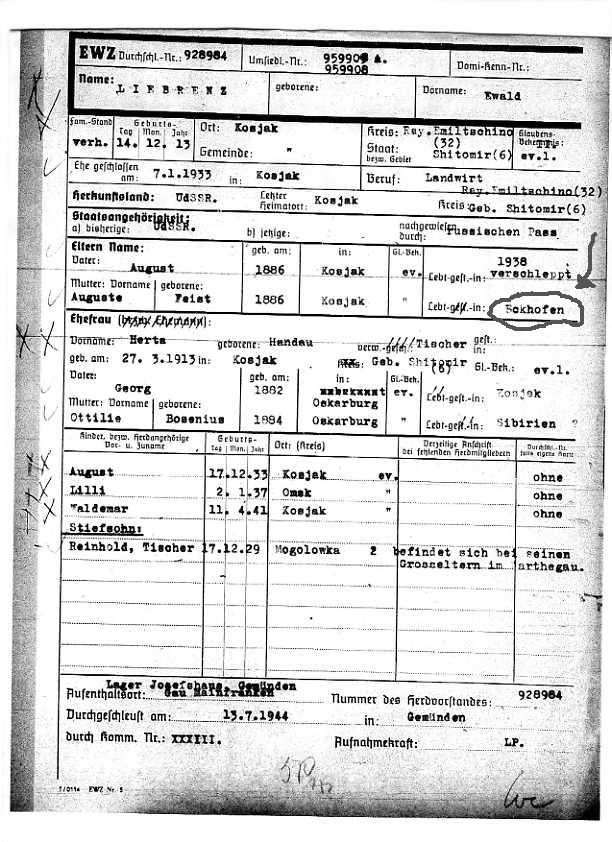 EWZ Durchschl.-Nr.: 928984 Umsiedl.-Nr.: 959909 A. Domi-Kenn-Nr.:
959908
Name: geborene: Vorname:
LIEBRENZ Ewald
Fam.-Stand Geburts- Ort: Kosjak Kreis: Ray. Emiltschino Glaubens-
Tag Mon. Jahr (32) Bekenntnis:
verh. 14. 12. 13 Gemeinde: " Staat: Shitomir(6) ev.l.
bezw. Gebiet
Ehe geschlossen
am: 7.1.1933 in: Kosjak Beruf: Landwirt
Ray.Emiltschino(32)
Herkunftsland: UdSSR. Letzter Heimatort: Kosjak Kreis: Geb. Shitomir(6)
Staatsangehörigkeit:
a) bisherige: UdSSR. b) jetzige: nachgewiesen durch: russischen Pass
Eltern Name: geb. am: in: Gl.-Bek. 1938
Vater: August 1886 Kosjak ev. Lebt-gest.-in: verschleppt
Mutter: Vorname geborene:
Auguste Feist 1886 Kosjak " Lebt-gest.-in: Eckhofen
Ehefrau (bezw. Ehemann):
Vorname: Herta geborene: Handau verw.-gesch.: Tischer gest.:
in:
geb. am: 27. 3.1913 in: Kosjak Kreis: Geb. Shitomir (6) Gl.-Bek.: ev.l.
Vater: geb. am: in: Gl.-Bek.
Georg 1882 Oskarburg ev. Lebt-gest.-in: Kosjak
Mutter: Vorname geborene:
Ottilie Bosenius 1884 Oskarburg " Lebt-gest.-in: Sibirien ?
Kinder, bezw. Herdangehörige Geburts- Ort: (Kreis) Derzeitige Anschrift Durchschl.-Nr.
Vor- u. Zuname Tag Mon. Jahr bei fehlenden Herdmitgliedern falls eigene Karte
August 17.12.33 Kosjak ev. ohne
Lilli 2. 1.37 Omsk " ohne
Waldemar 11. 4.41 Kosjak " ohne
Stiefsohn:
Reinhold, Tischer 17.12.29 Mogolowka 2 befindet sich bei seinen
Grosseltern im arthegau.
Lager Josefshaus, Gemünden
Aufenthaltsort: Gau Mainfranken Nummer des Herdvorstandes: 928984
Durchgeschleust am: 13.7.1944 in: Gemünden
durch Komm. Nr.: XXXIII. Aufnahmekraft: LP.
EWZ Nr. 5